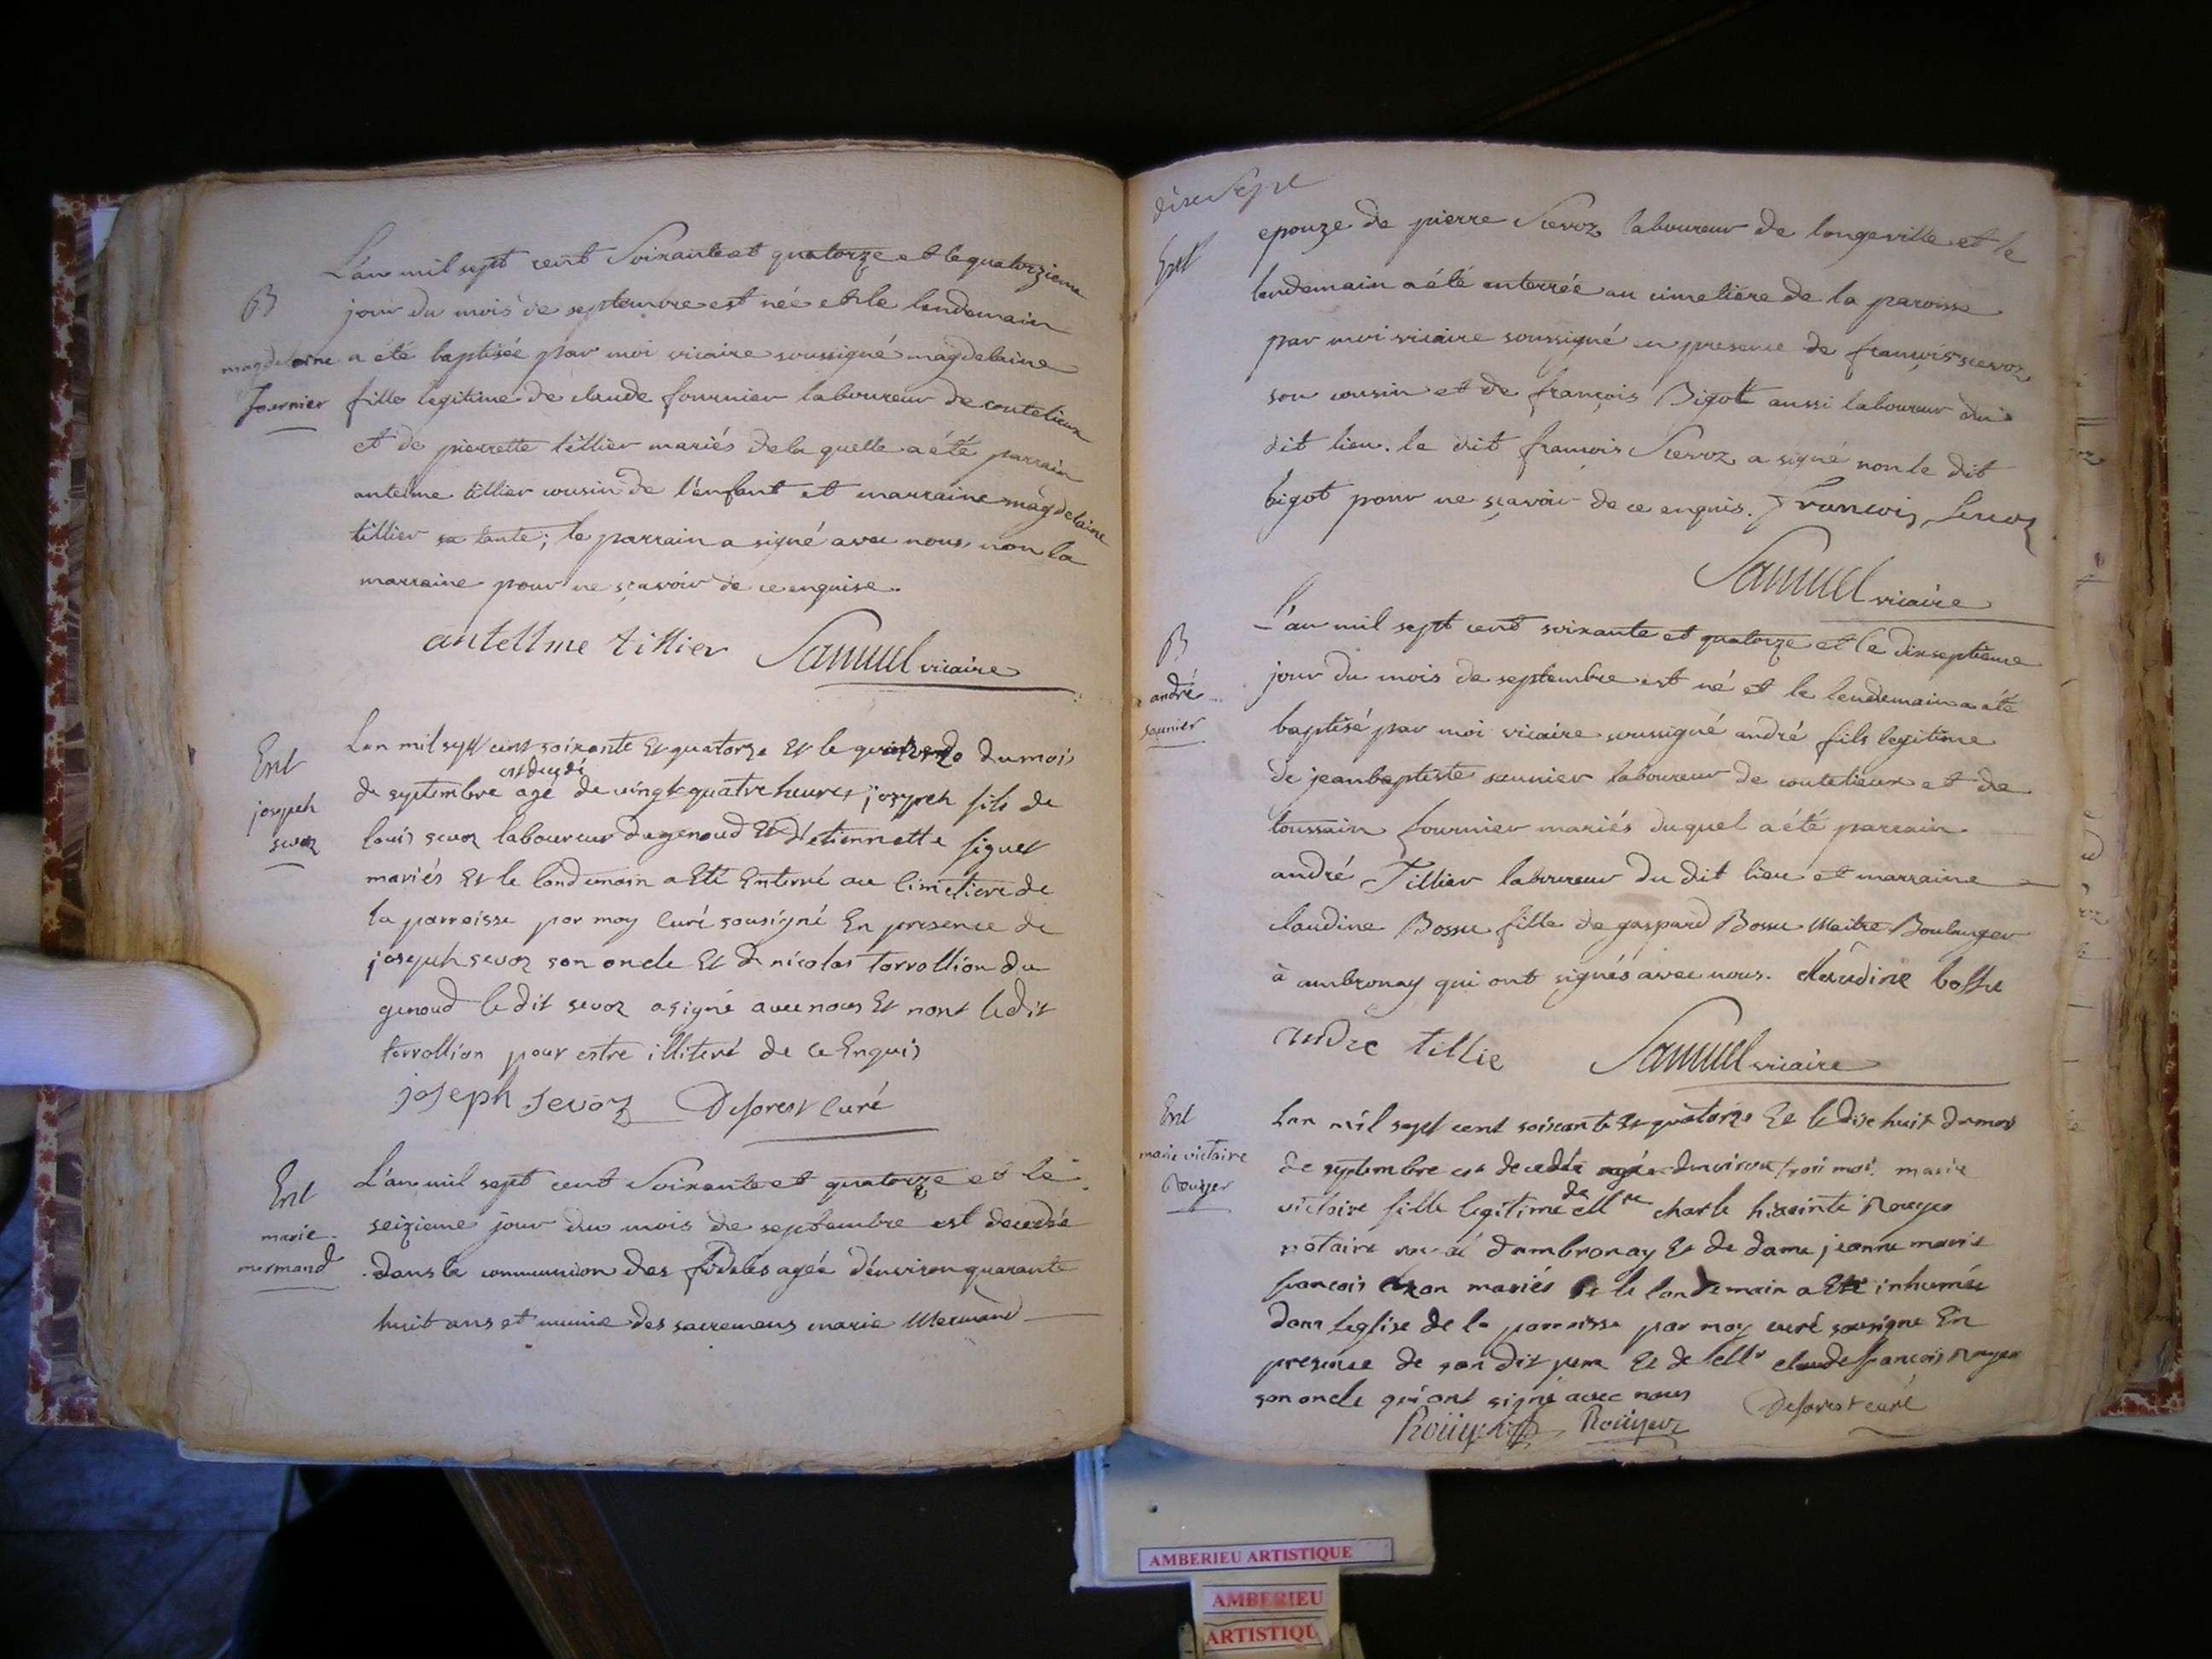 L'an mil sept cent Soixante et quatorze et le quatorzieme
B
jour du mois de septembre est née et le lendemain
magdelaine
a été baptisée par moi vicaire soussigné magdelaine
fournier
fille legitime de claude fournier laboureur de coutelieux
et de pierrette tillier mariés de la quelle a été parrain
antelme tillier cousin de l'enfant et marraine magdelaine
tillier sa tante; le parrain a signé avec nous non la
marraine pour ne sçavoir de ce enquise.
antellme tillier Samuel vicaire
Ent
joseph
sevoz
Lan mil sept cent soixante Et quatorze Et le quinze du mois
est decedé
de septembre agé de vingt quatre heures joseph fils de
louis sevoz laboureur du genoud Et d'etiennette siguet
mariés Et le landemain a Eté Enterré au cimetiere de
la parroisse par moy curé sousigné En presence de
joseph sevoz son oncle Et de nicolas torrollion du
genoud le dit sevoz a signé avec nous Et nont le dit
torrollion pour estre illiteré de ce Enquis
joseph sevoz Deforest curé
Ent
marie
mermand
L'an mil sept cent Soixante et quatorze et le
seizieme jour du mois de septembre est decedée
dans la communion des fideles agée d'environ quarante
huit ans et munie des sacremens marie Mermand
dixsept
Ent
epouze de pierre Scevoz laboureur de longeville et le
lendemain a été enterrée au cimetiere de la paroisse
par moi vicaire soussigné en presence de françois scevoz
son cousin et de françois Bigot aussi laboureur du
dit lieu. le dit françois Scevoz a signé non le dit
bigot pour ne sçavoir de ce enquis. francois sevoz
Samuel vicaire
B
andré
saunier
L'an mil sept cent soixante et quatorze et le dixseptieme
jour du mois de septembre est né et le lendemain a été
baptisé par moi vicaire soussigné andré fils legitime
de jean baptiste saunier laboureur de coutelieux et de
toussain fournier mariés duquel a été parrain
andré Tillier laboureur du dit lieu et marraine
claudine Bossu fille de gaspard Bossu Maitre Boulanger
à ambronay qui ont signés avec nous. claudine bossu
andre tillie Samuel vicaire
Ent
marie victoire
Rouyer
Lan mil sept cent soixante Et quatorze Et le dixe huit du mois
de septembre est decedée agée denviron trois mois marie
victoire fille legitime de Mre charle hiacinte Rouyer
notaire royal dambronay Et de dame jeanne marie
francois mariés Et le landemain a Eté inhumée
dans leglise de la parroisse par moy curé sousigne En
presence de son dit pere Et de claude francois Rouyer
son oncle qui ont signé avec nous Deforest curé
Roüyer Roüyer
AMBERIEU ARTISTIQUE
AMBERIEU
ARTISTIQU